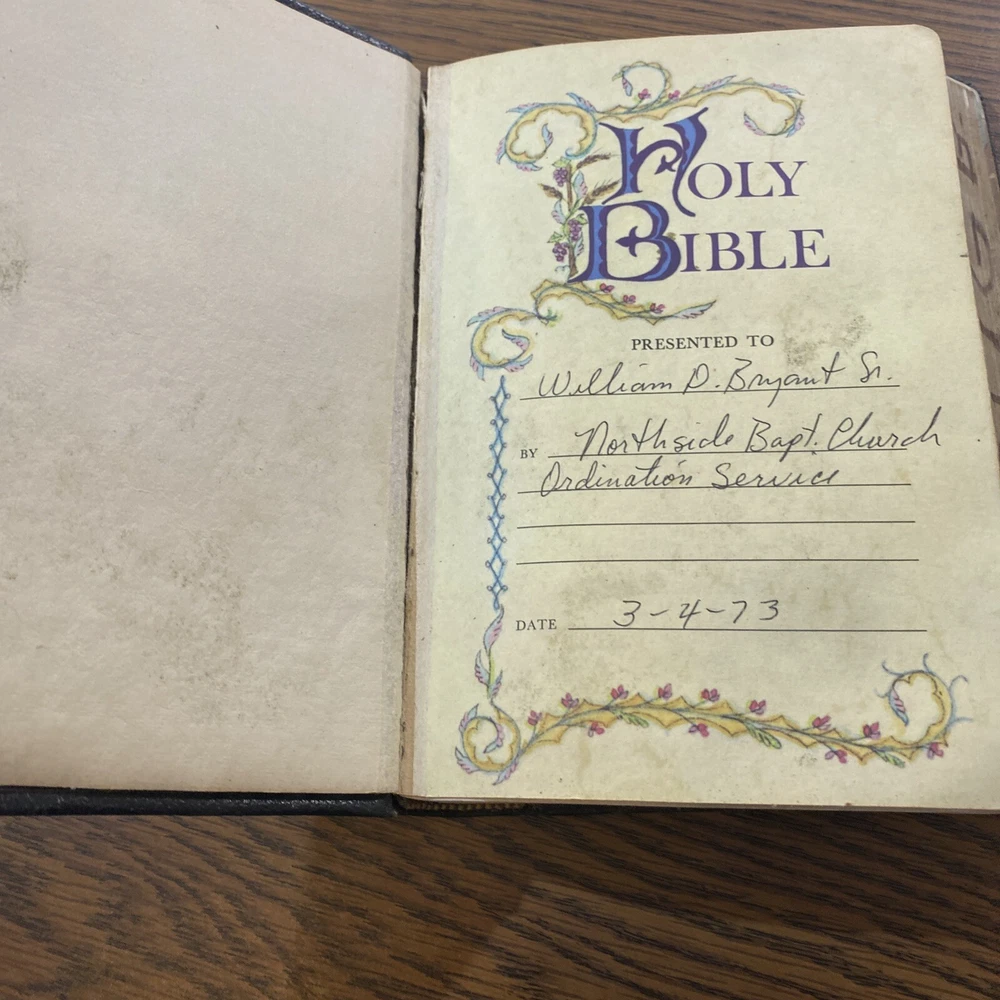 HOLY
BIBLE
PRESENTED TO
William D. Bryant Sr.
BY Northside Bapt. Church
Ordination Service
DATE 3-4-73